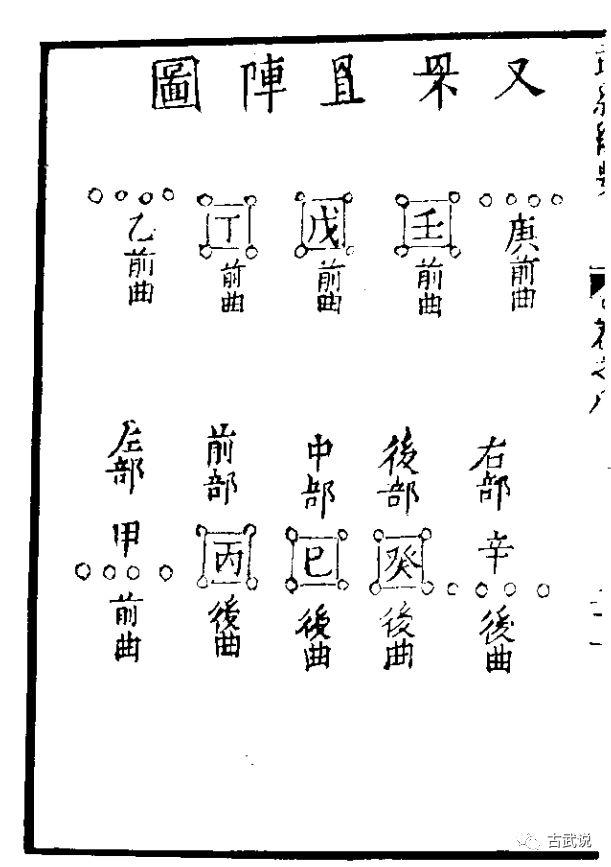 又罘罝陣圖
庚前曲
壬前曲
戊前曲
丁前曲
乙前曲
右部辛後曲
後部癸後曲
中部巳後曲
前部丙後曲
左部甲前曲
古武说